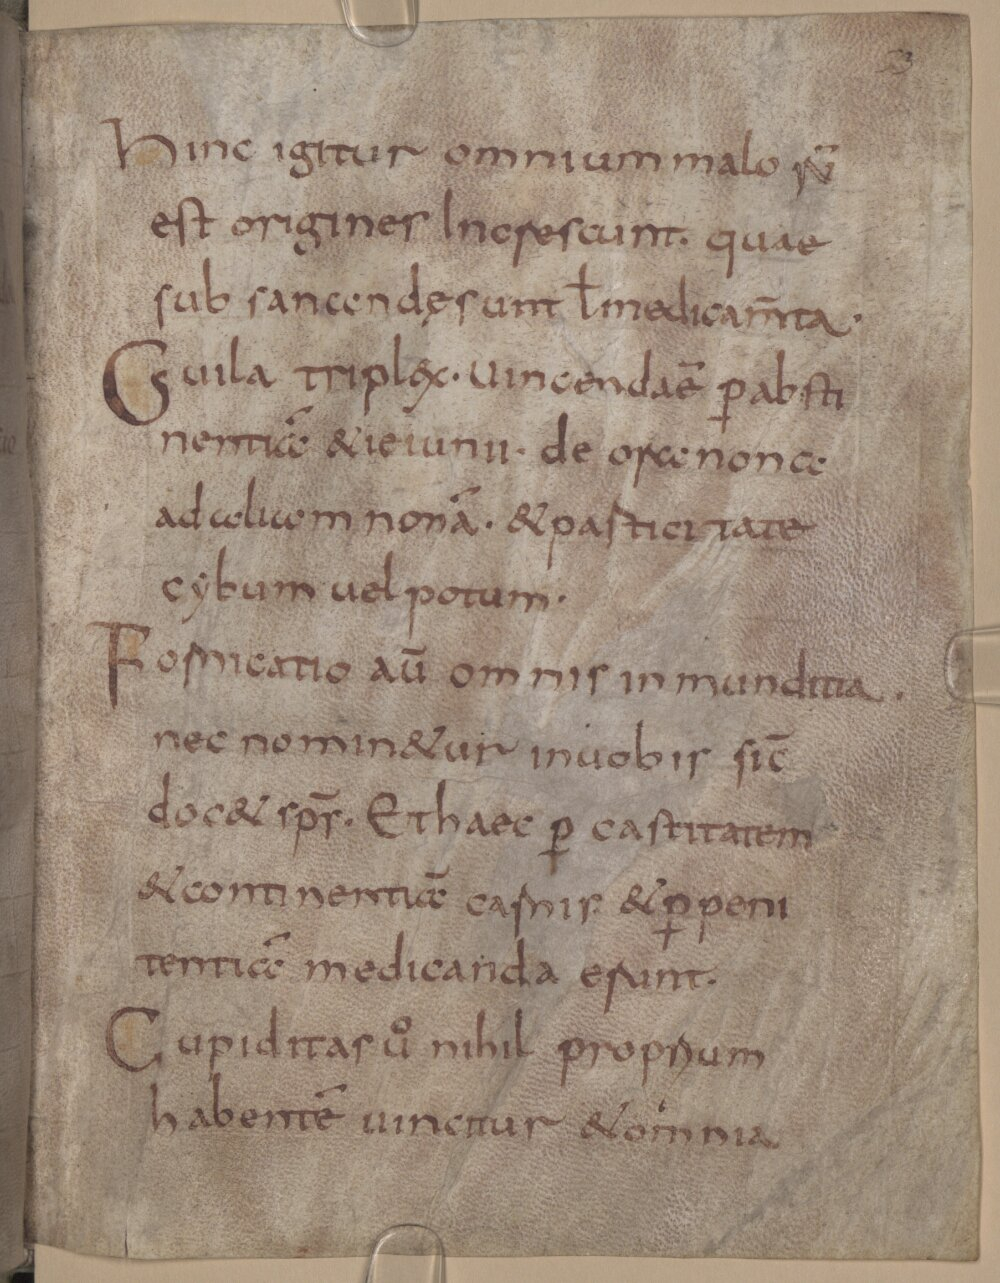 53
Hinc igitur omnium malo rū
est origines Inorescunt. quae
sub sanandę sunt ł medicam̄ta.
Guila triplex. Uincendaē p̱ absti
nentiā & ieiunii. de ora nona
ad aliam nonā. & pastiertate
cybum uel potum.
Fornicatio aū omnis inmunditia.
nec nomin&ur in uobis sic̄
doc& sp̄s. Et haec p̱ castitatem
& continentiā carnis & p̱ peni
tentiā medicanda erunt.
Cupiditas uͦ nihil proprium
habentē uincitur & omnia